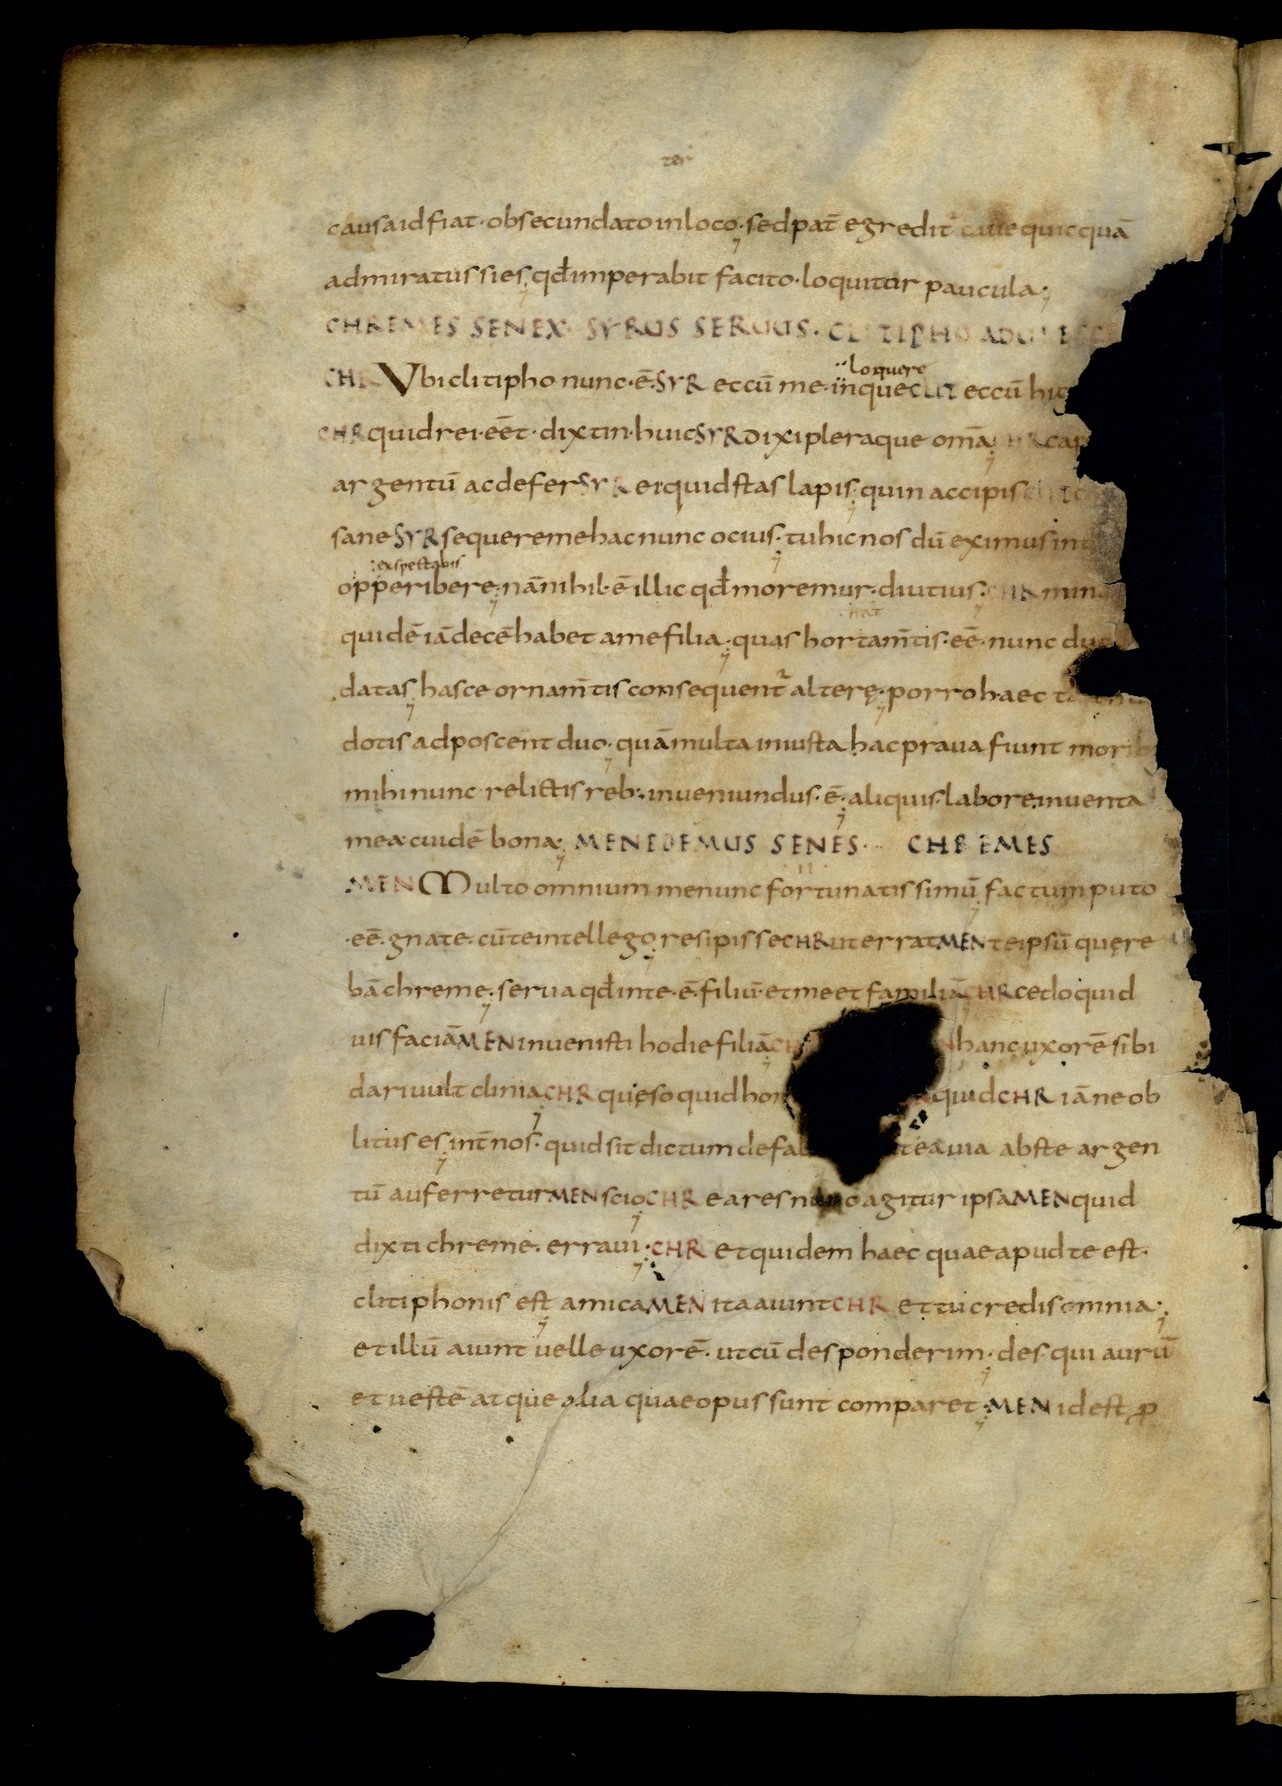 ter
causa id fiat · obsecundato in loco · sed pat̄ egredit̄ caue quicquā
admiratus sies · qđ imperabit facito · loquitur paucula ·
CHREMES SENEX · SYRUS SERUUS · CLITIPHO ADULESCE
loquere
CHR Ubi clitipho nunc · ē · SYR eccū me · inque CLIT eccū hic
CHR quid rei · eēt · dixtin · huic SYR dixi pleraque om̄a · CHR cap
argentū ac defer SYR ei quid stas lapis · quin accipis CLIT
sane SYR sequere me hac nunc ocius · tu hic nos dū eximus int
exspectabis
opperibere · nā nihil · ē illic qđ moremur · diutius · CHR min
quidē iā decē habet a me filia · quas hortam̄tis · eē · nunc du
datas hasce ornam̄tis consequent᷑ alterę · porro haec
dotis adposcent duo · quā multa iniusta hac praua fiunt morib
mihi nunc relictis reb: inueniundus · ē · aliquis · labore inuenta
mea cui dē bona · MENEDEMUS SENES · CHREMES
MEN Multo omnium me nunc fortunatissimū factum puto
· eē · gnate · cū te intellego resipisse CHR ut errat MEN te ipsū quęre
bā chreme · serua qđ in te · ē · filiū · et me et familiā CHR cedo quid
uis faciā MEN inuenisti hodie filiā hanc uxorē sibi
dari uult clinia CHR quęso quid quid CHR iāne ob
litus es int̄ nos · quid sit dictum de ea uia abste argen
tū auferretur MEN scio CHR ea res agitur ipsa MEN quid
dixti chreme · erraui · CHR et quidem haec quae apud te est ·
clitiphonis est amica MEN ita aiunt CHR et tu credis omnia ·
et illū aiunt uelle uxorē · ut cū desponderim · des qui aurū
et uestē atque alia quae opus sunt comparet · MEN id est ꝓ